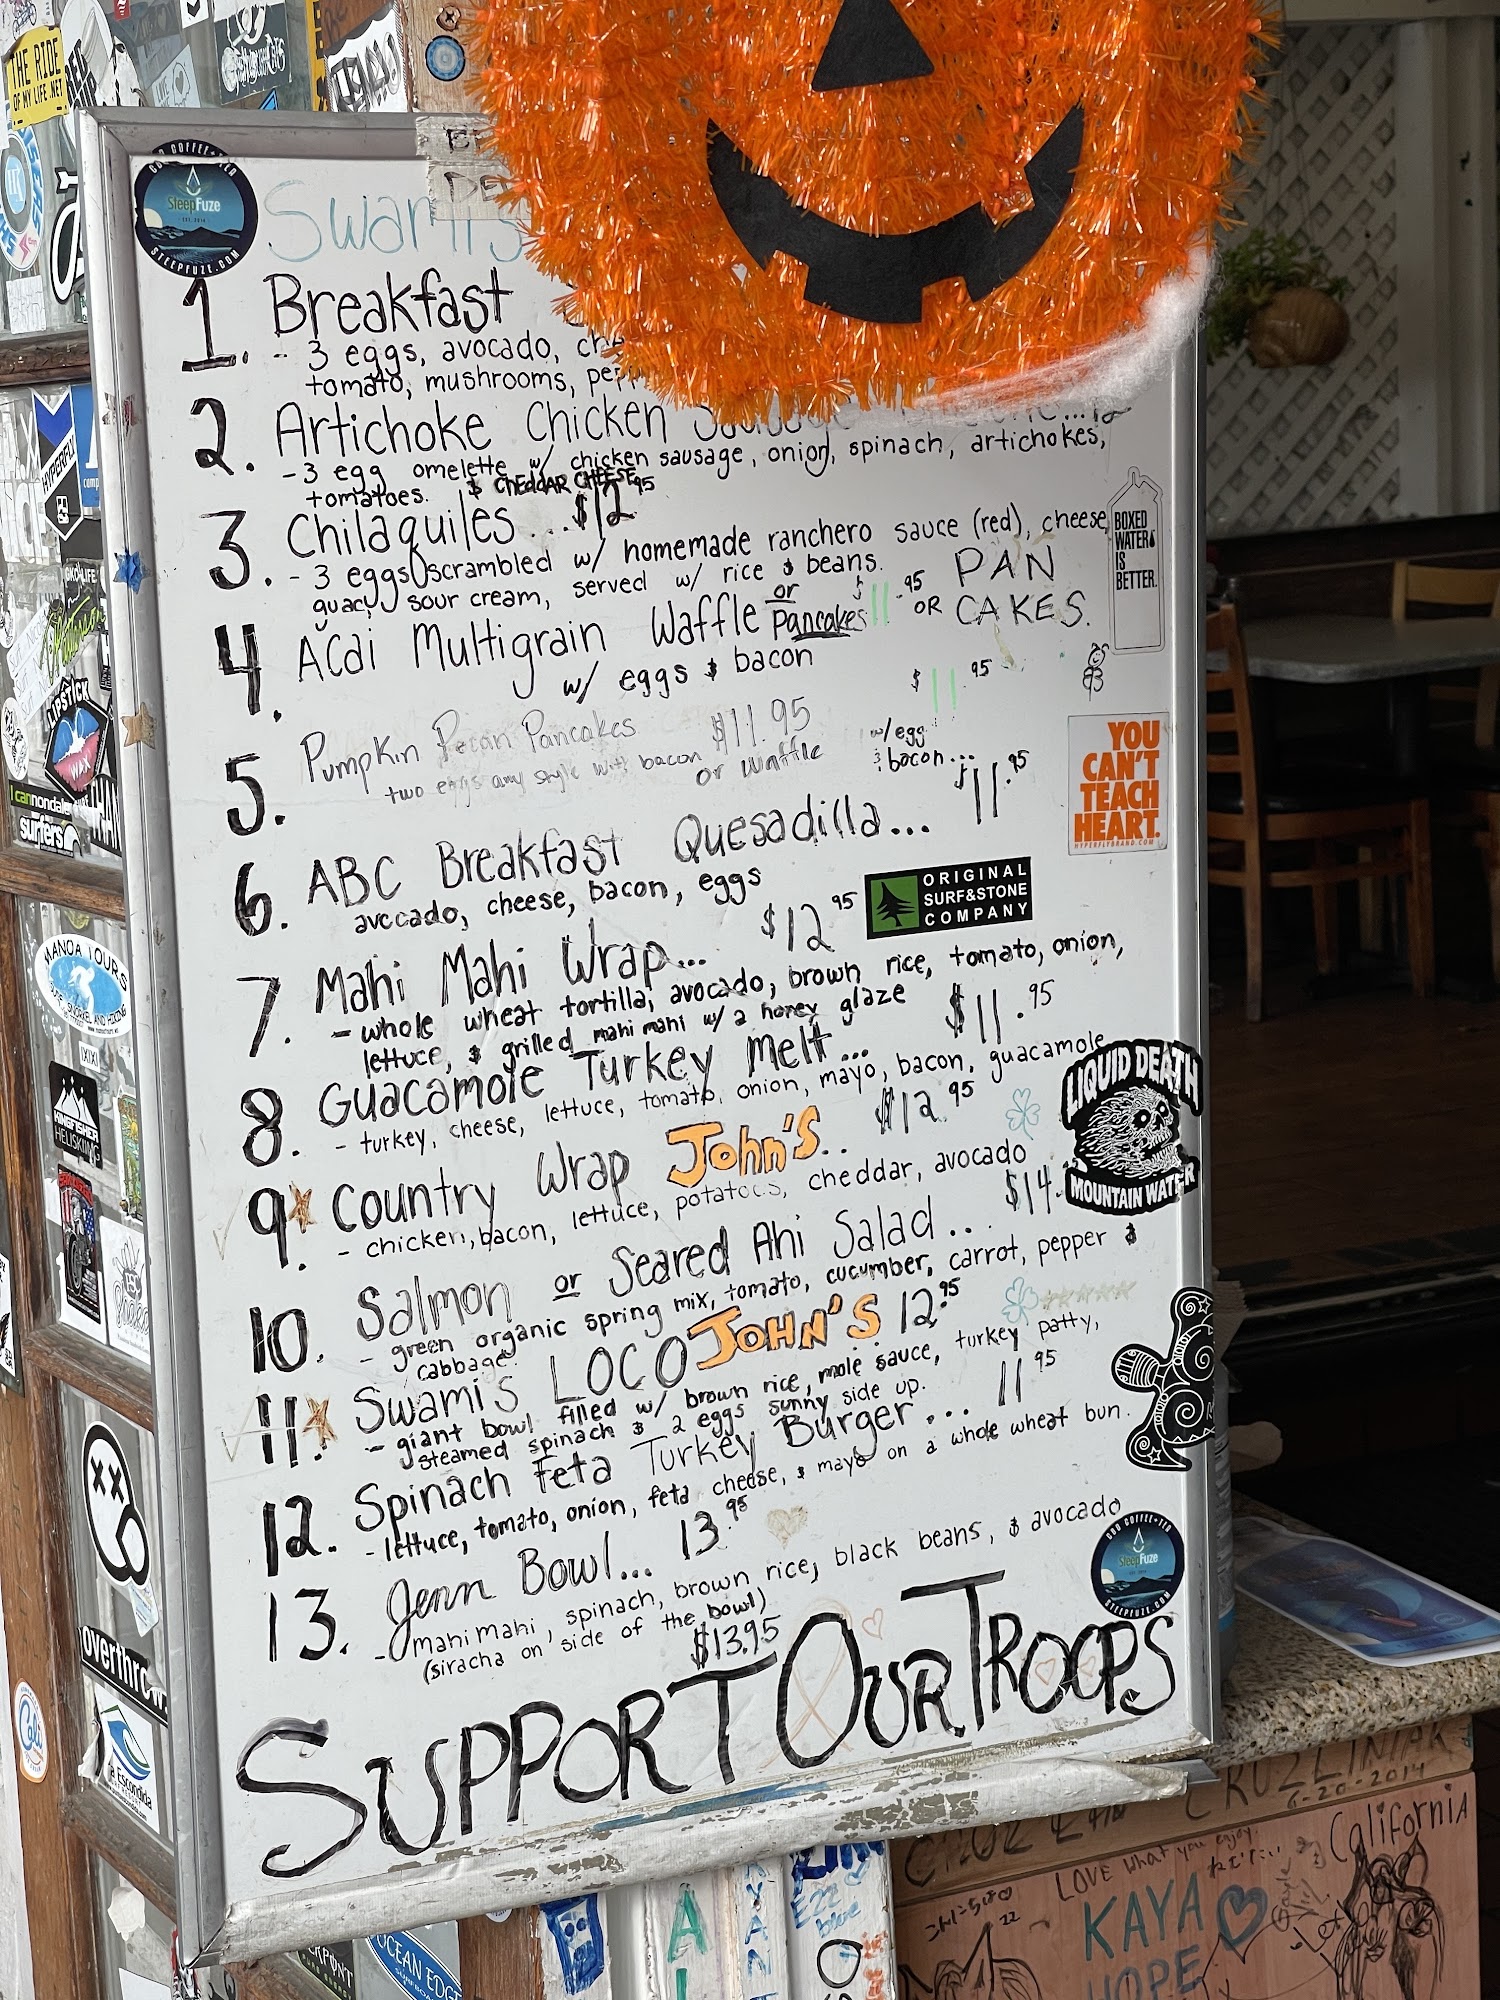 THE RIDE
OF MY LIFE.NET
SleepFuze
STEEPFUZE.COM
Swami's
1. Breakfast
- 3 eggs, avocado,
tomato, mushrooms,
2. Artichoke Chicken
- 3 egg omelette w/ chicken sausage, onion, spinach, artichokes,
tomatoes. & CheddAR CHEESE
3. Chilaquiles... $12.95
- 3 eggs scrambled w/ homemade ranchero sauce (red), cheese,
guac, sour cream, served w/ rice & beans.
4. ACai Multigrain Waffle or Pancakes $11.95 OR PAN CAKES.
w/ eggs & bacon $11.95
5. Pumpkin Pecan Pancakes $11.95 w/egg
two eggs any style with bacon or waffle & bacon... $11.95
6. ABC Breakfast Quesadilla...
avocado, cheese, bacon, eggs
7. Mahi Mahi Wrap... $12.95
- whole wheat tortilla, avocado, brown rice, tomato, onion,
lettuce, & grilled mahi mahi w/ a honey glaze
8. Guacamole Turkey Melt... $11.95
- turkey, cheese, lettuce, tomato, onion, mayo, bacon, guacamole
9. Country Wrap John's.. $12.95
- chicken, bacon, lettuce, potatoes, cheddar, avocado
10. Salmon or Seared Ahi Salad... $14.
- green organic spring mix, tomato, cucumber, carrot, pepper &
cabbage.
11. Swami's LOCO JOHN'S 12.95
- giant bowl filled w/ brown rice, mole sauce, turkey patty,
steamed spinach & 2 eggs sunny side up.
12. Spinach Feta Turkey Burger... 11.95
- lettuce, tomato, onion, feta cheese, & mayo on a whole wheat bun.
13. Jenn Bowl... 13.95
- mahi mahi, spinach, brown rice, black beans, & avocado
(siracha on side of the bowl)
$13.95
SUPPORT OUR TROOPS
BOXED
WATER
IS
BETTER.
YOU
CAN'T
TEACH
HEART.
HYPERFLYBRAND.COM
ORIGINAL
SURF&STONE
COMPANY
LIQUID DEATH
MOUNTAIN WATER
SteepFuze
STEEPFUZE.COM
HYPERFLY
LIPSTICK
WAX
I cannondale
surfers
MANOA TOURS
KINGFISHER
HELISKIING
overthrow
Cali
La Escondida
OCEAN EDGE
CRUZ LINIAK
6-20-2014
California
LOVE what you enjoy.
KAYA
HOPE